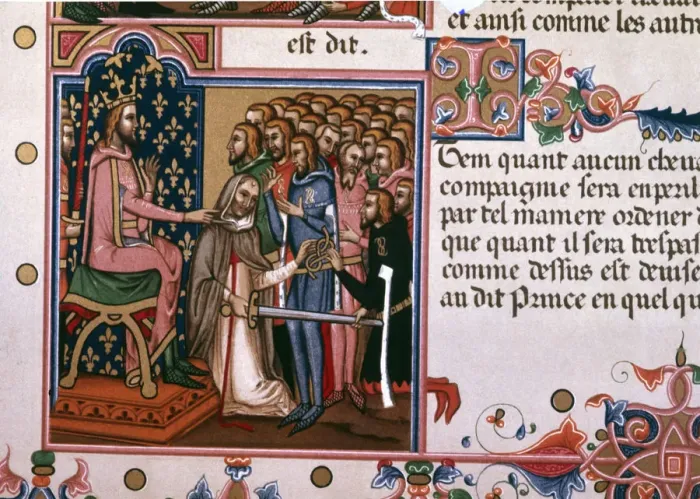 est dit.
et ainsi comme les autr
Item quant aucun cheu
compaignie sera
par tel maniere ordener
que quant il sera trespas
comme dessus est deuise
au dit Prince en quel qu